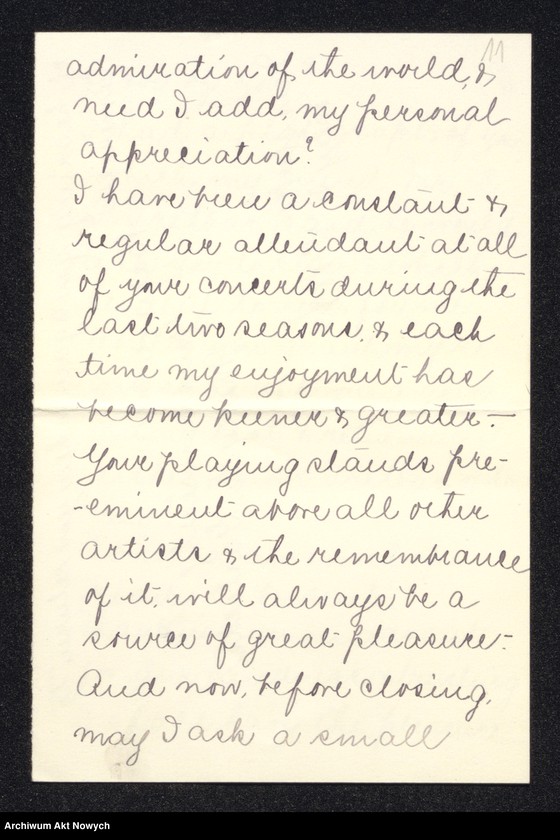 11
admiration of the world, &
need I add, my personal
appreciation?
I have been a constant &
regular attendant at all
of your concerts during the
last two seasons, & each
time my enjoyment has
become keener & greater.—
Your playing stands pre-
-eminent above all other
artists & the remembrance
of it, will always be a
source of great pleasure.-
And now, before closing,
may I ask a small
Archiwum Akt Nowych